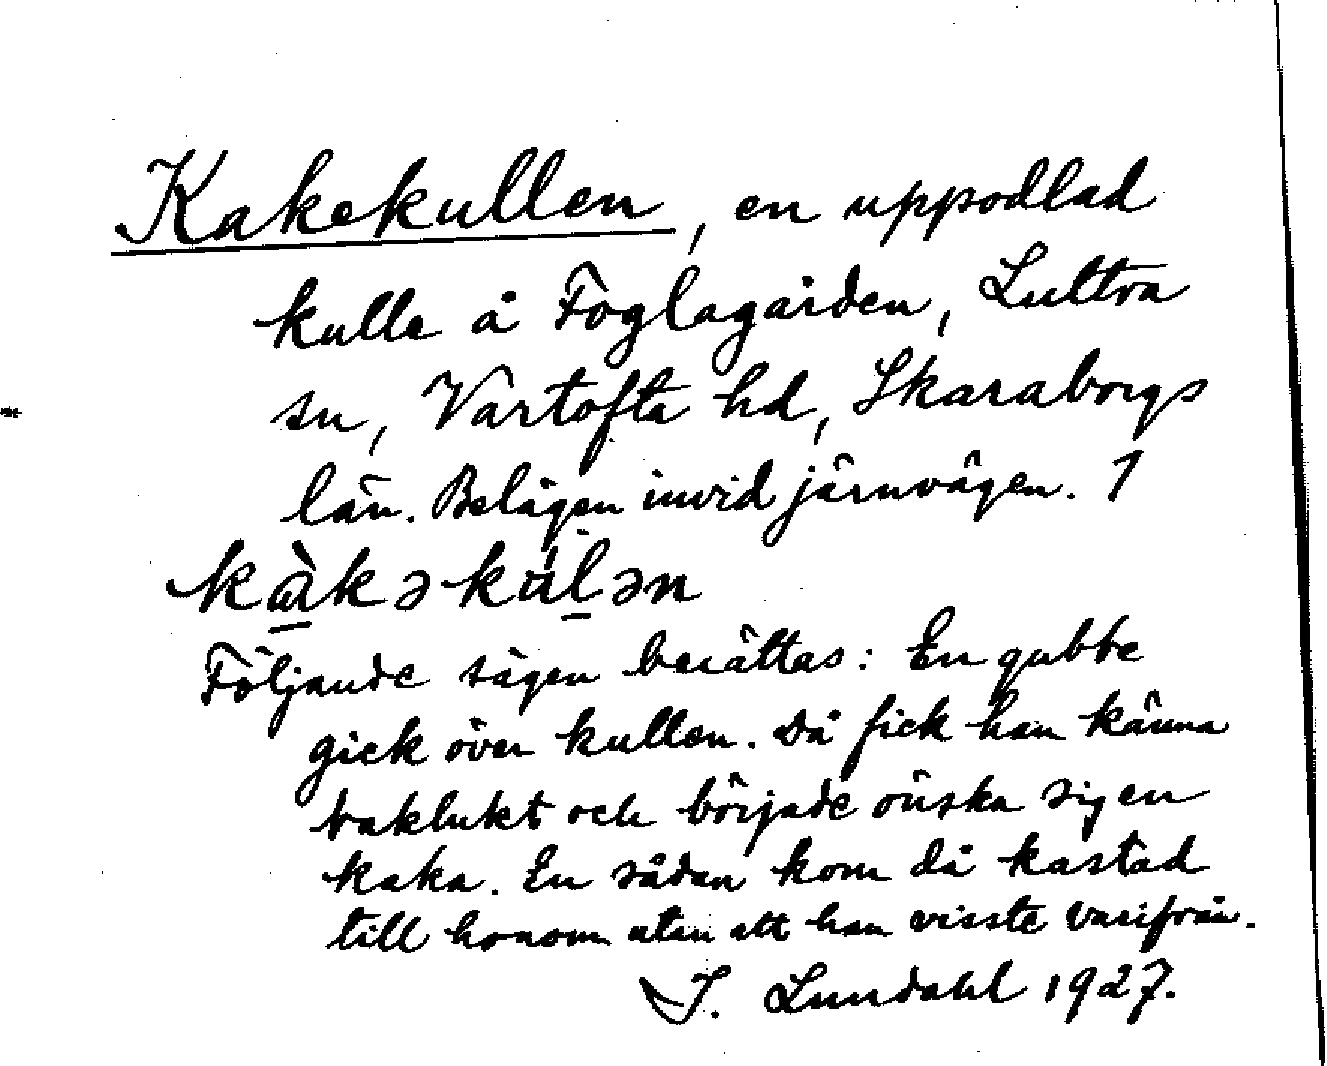 Kakekullen, en uppodlad
kulle å Foglagården, Luttra
sn, Vartofta hd, Skaraborgs
län. Belägen invid järnvägen. 1
kàkəku̇lən
Följande sägen berättas: En gubbe
gick över kullen. Då fick han känna
baklukt och började önska sig en
kaka. En sådan kom då kastad
till honom utan att han visste varifrån.
I. Lundahl 1927.